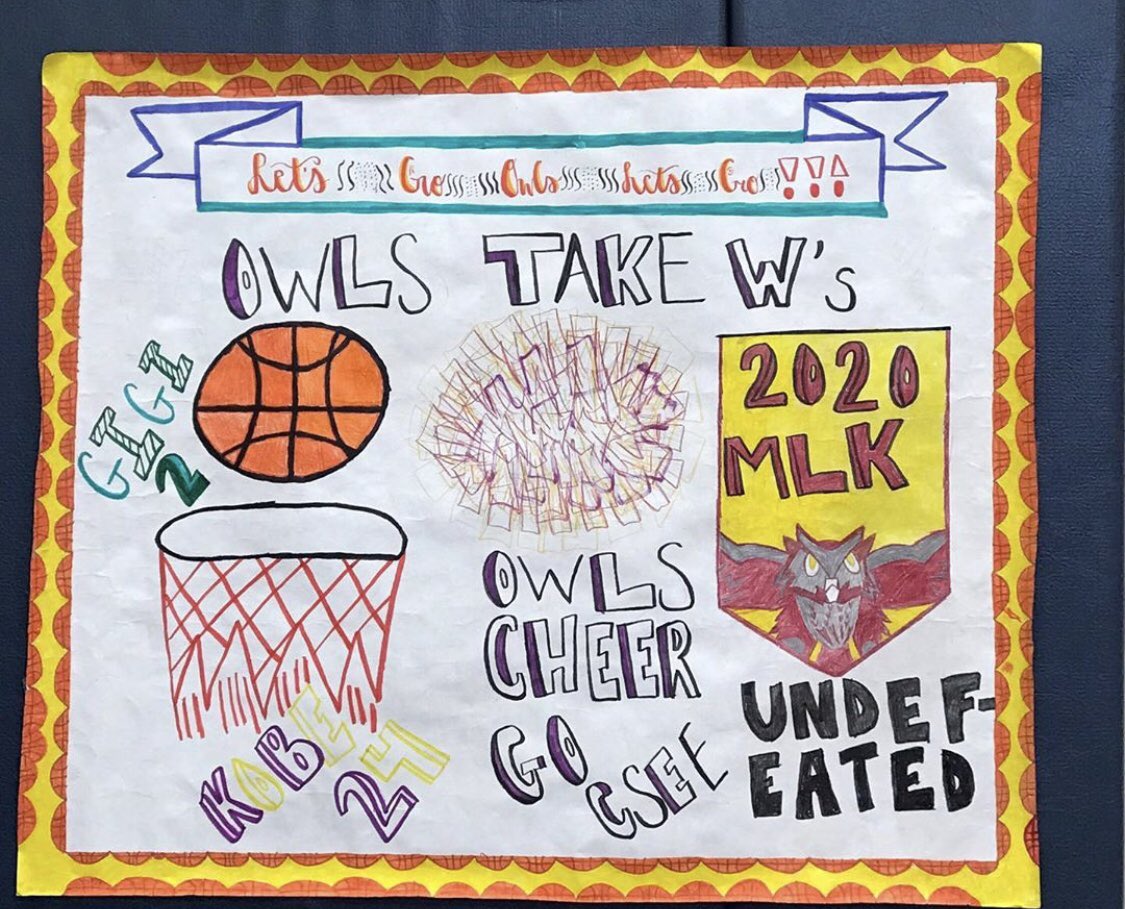 Let's Go Owls Lets Go!!!
OWLS TAKE W's
GIGI
2
2020
MLK
OWLS
CHEER
GO
CSEE
UNDEF-
EATED
KOBE
24